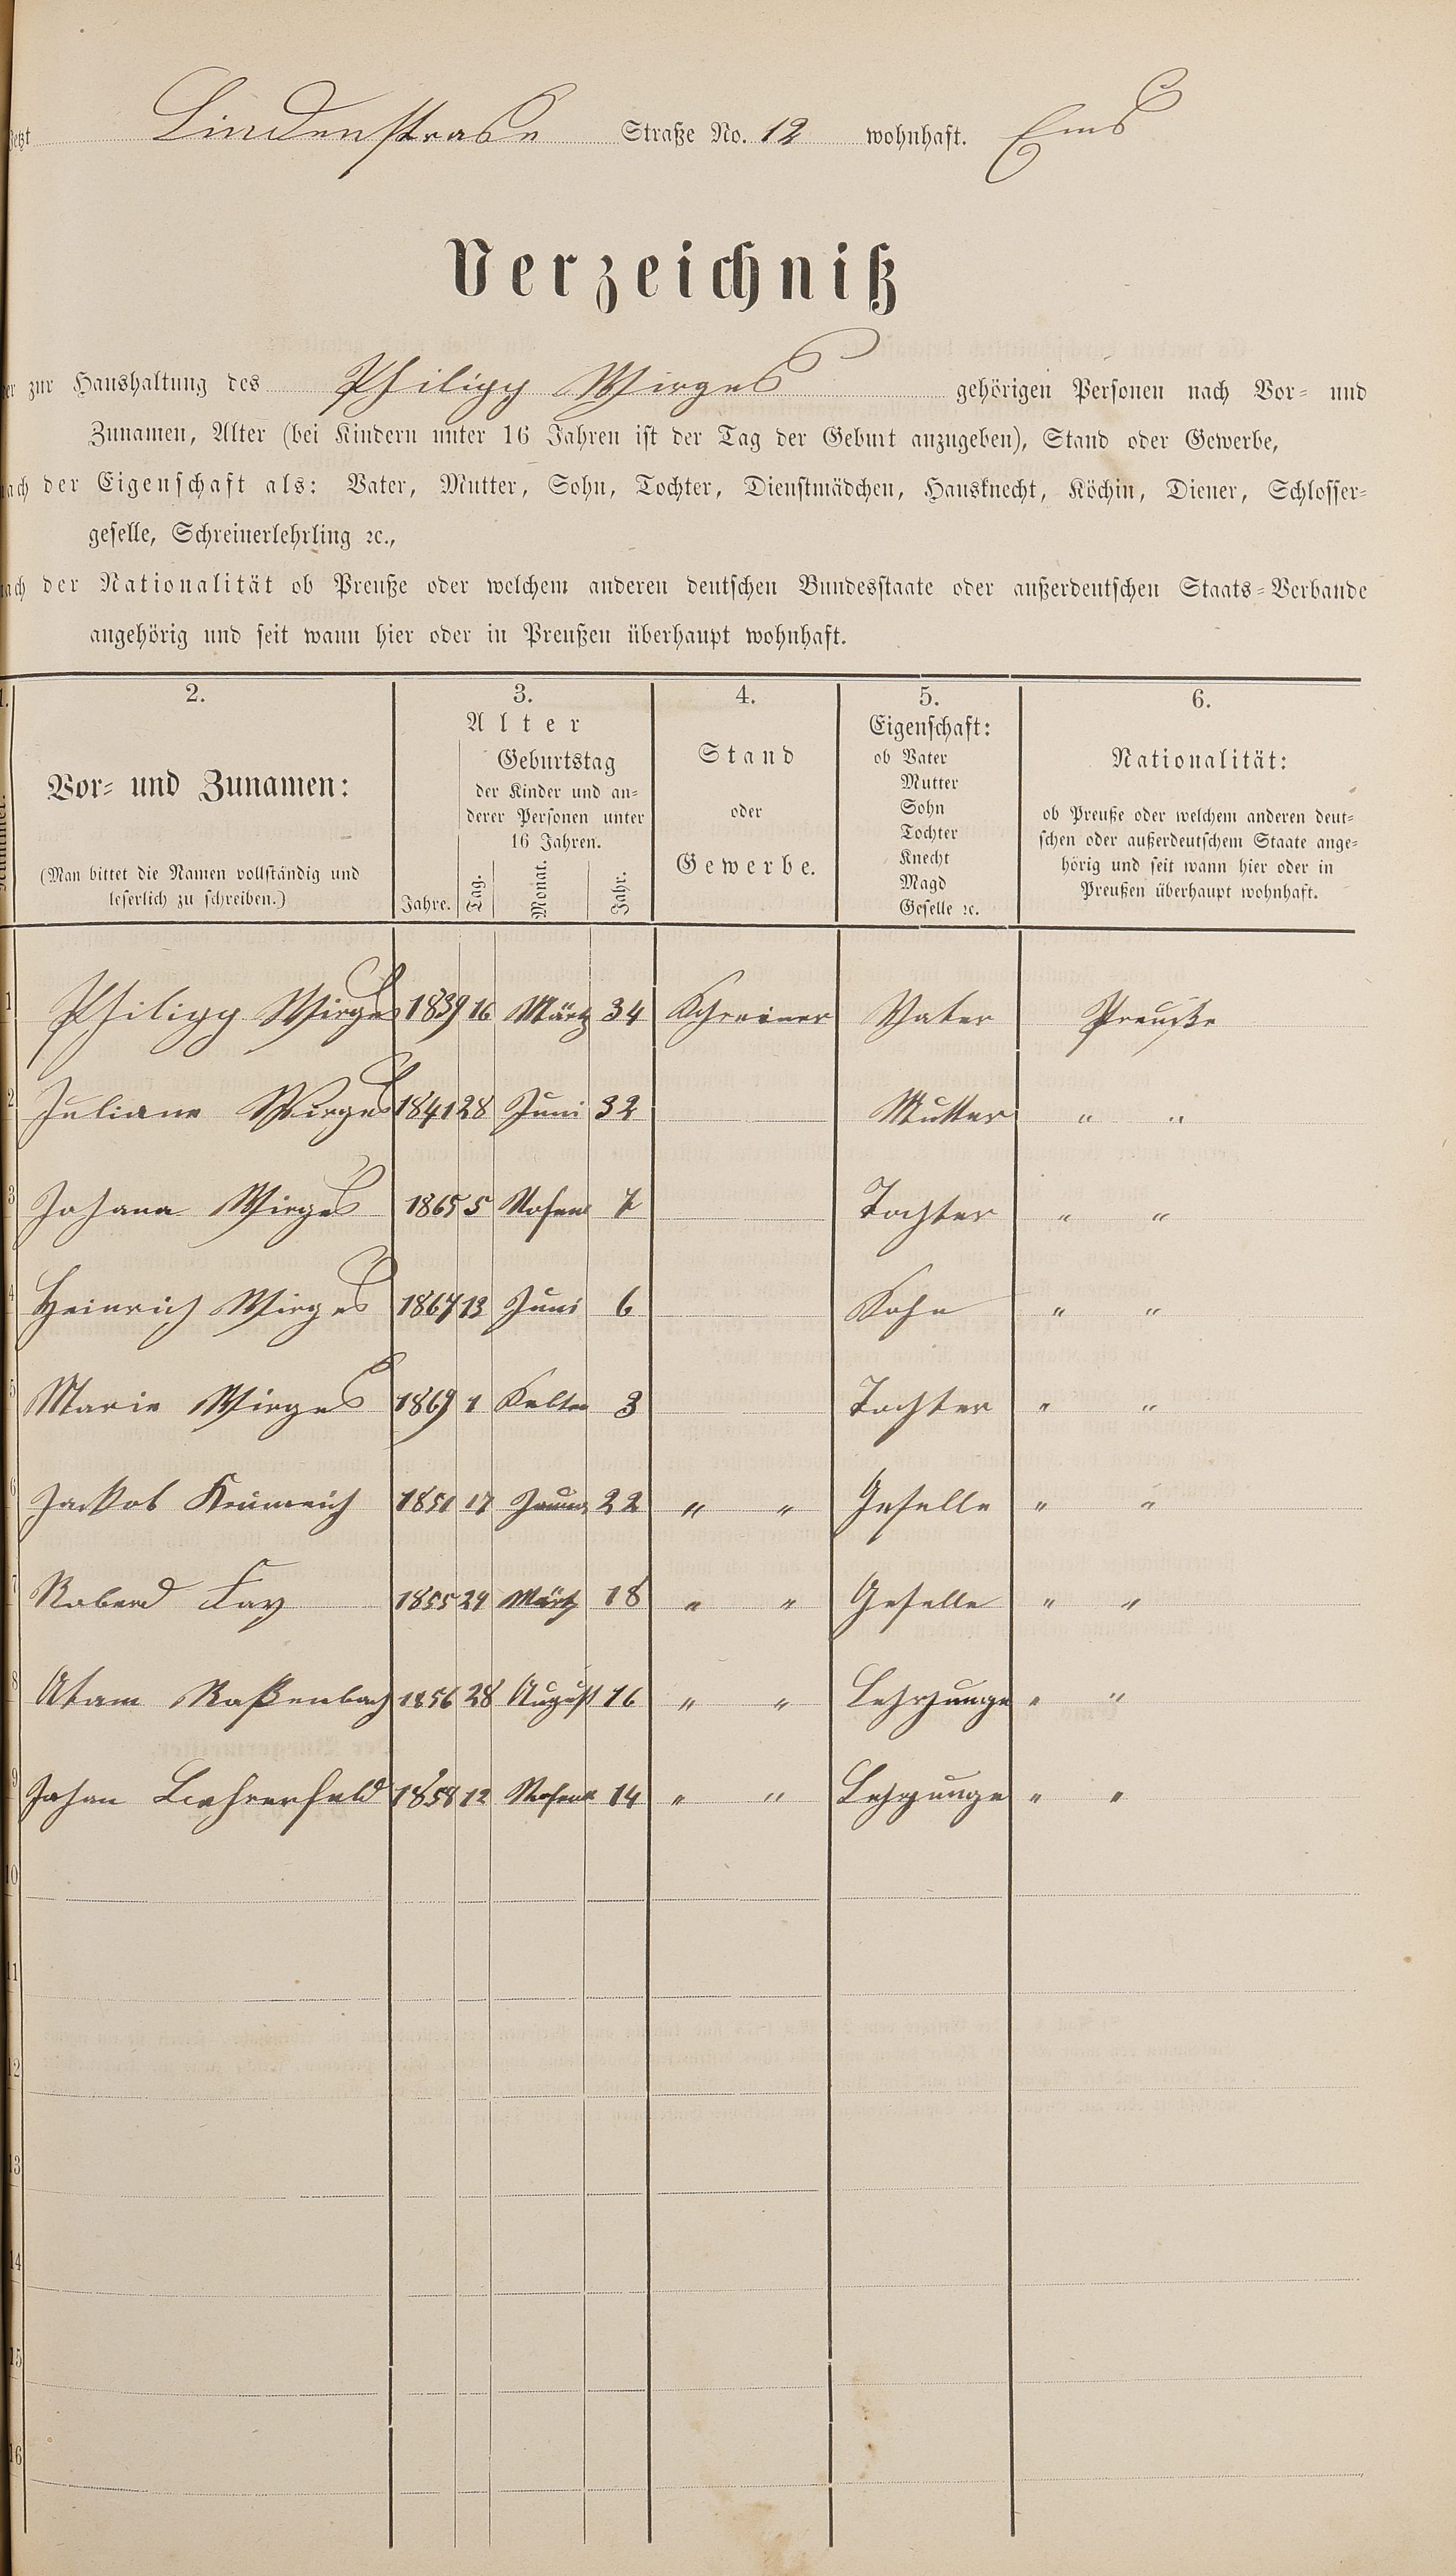 jetzt Lindenstrase Straße No. 12 wohnhaft. Ems
Verzeichniß
der zur Haushaltung des Philipp Wirges gehörigen Personen nach Vor- und
Zunamen, Alter (bei Kindern unter 16 Jahren ist der Tag der Geburt anzugeben), Stand oder Gewerbe,
nach der Eigenschaft als: Vater, Mutter, Sohn, Tochter, Dienstmädchen, Hausknecht, Köchin, Diener, Schlosser-
geselle, Schreinerlehrling ꝛc.,
nach der Nationalität ob Preuße oder welchem anderen deutschen Bundesstaate oder außerdeutschen Staats-Verbande
angehörig und seit wann hier oder in Preußen überhaupt wohnhaft.
1. 2. 3. 4. 5. 6.
Nummer.
Vor- und Zunamen:
(Man bittet die Namen vollständig und
leserlich zu schreiben.)
Alter
Geburtstag
der Kinder und an-
derer Personen unter
16 Jahren.
Jahre. Tag. Monat. Jahr.
Stand
oder
Gewerbe.
Eigenschaft:
ob Vater
Mutter
Sohn
Tochter
Knecht
Magd
Geselle ꝛc.
Nationalität:
ob Preuße oder welchem anderen deut-
schen oder außerdeutschem Staate ange-
hörig und seit wann hier oder in
Preußen überhaupt wohnhaft.
1 Philipp Wirges 1839 16 Märtz 34 Schreiner Vater Preuße
2 Juliane Wirges 1841 28 Juni 32 Mutter " "
3 Johana Wirges 1865 5 Nofem 7 Tochter " "
4 Heinrich Wirges 1867 13 Juni 6 Sohn " "
5 Marie Wirges 1869 1 3 Tochter " "
6 Jackob 1851 17 22 " " Geselle " "
7 Roberd Fay 1855 24 Märtz 18 " " Geselle " "
8 Atam Raßenbach 1856 28 August 16 " " Lehrjunge " "
9 Johan 1858 12 Nofem 14 " " Lehrjunge " "
10
11
12
13
14
15
16